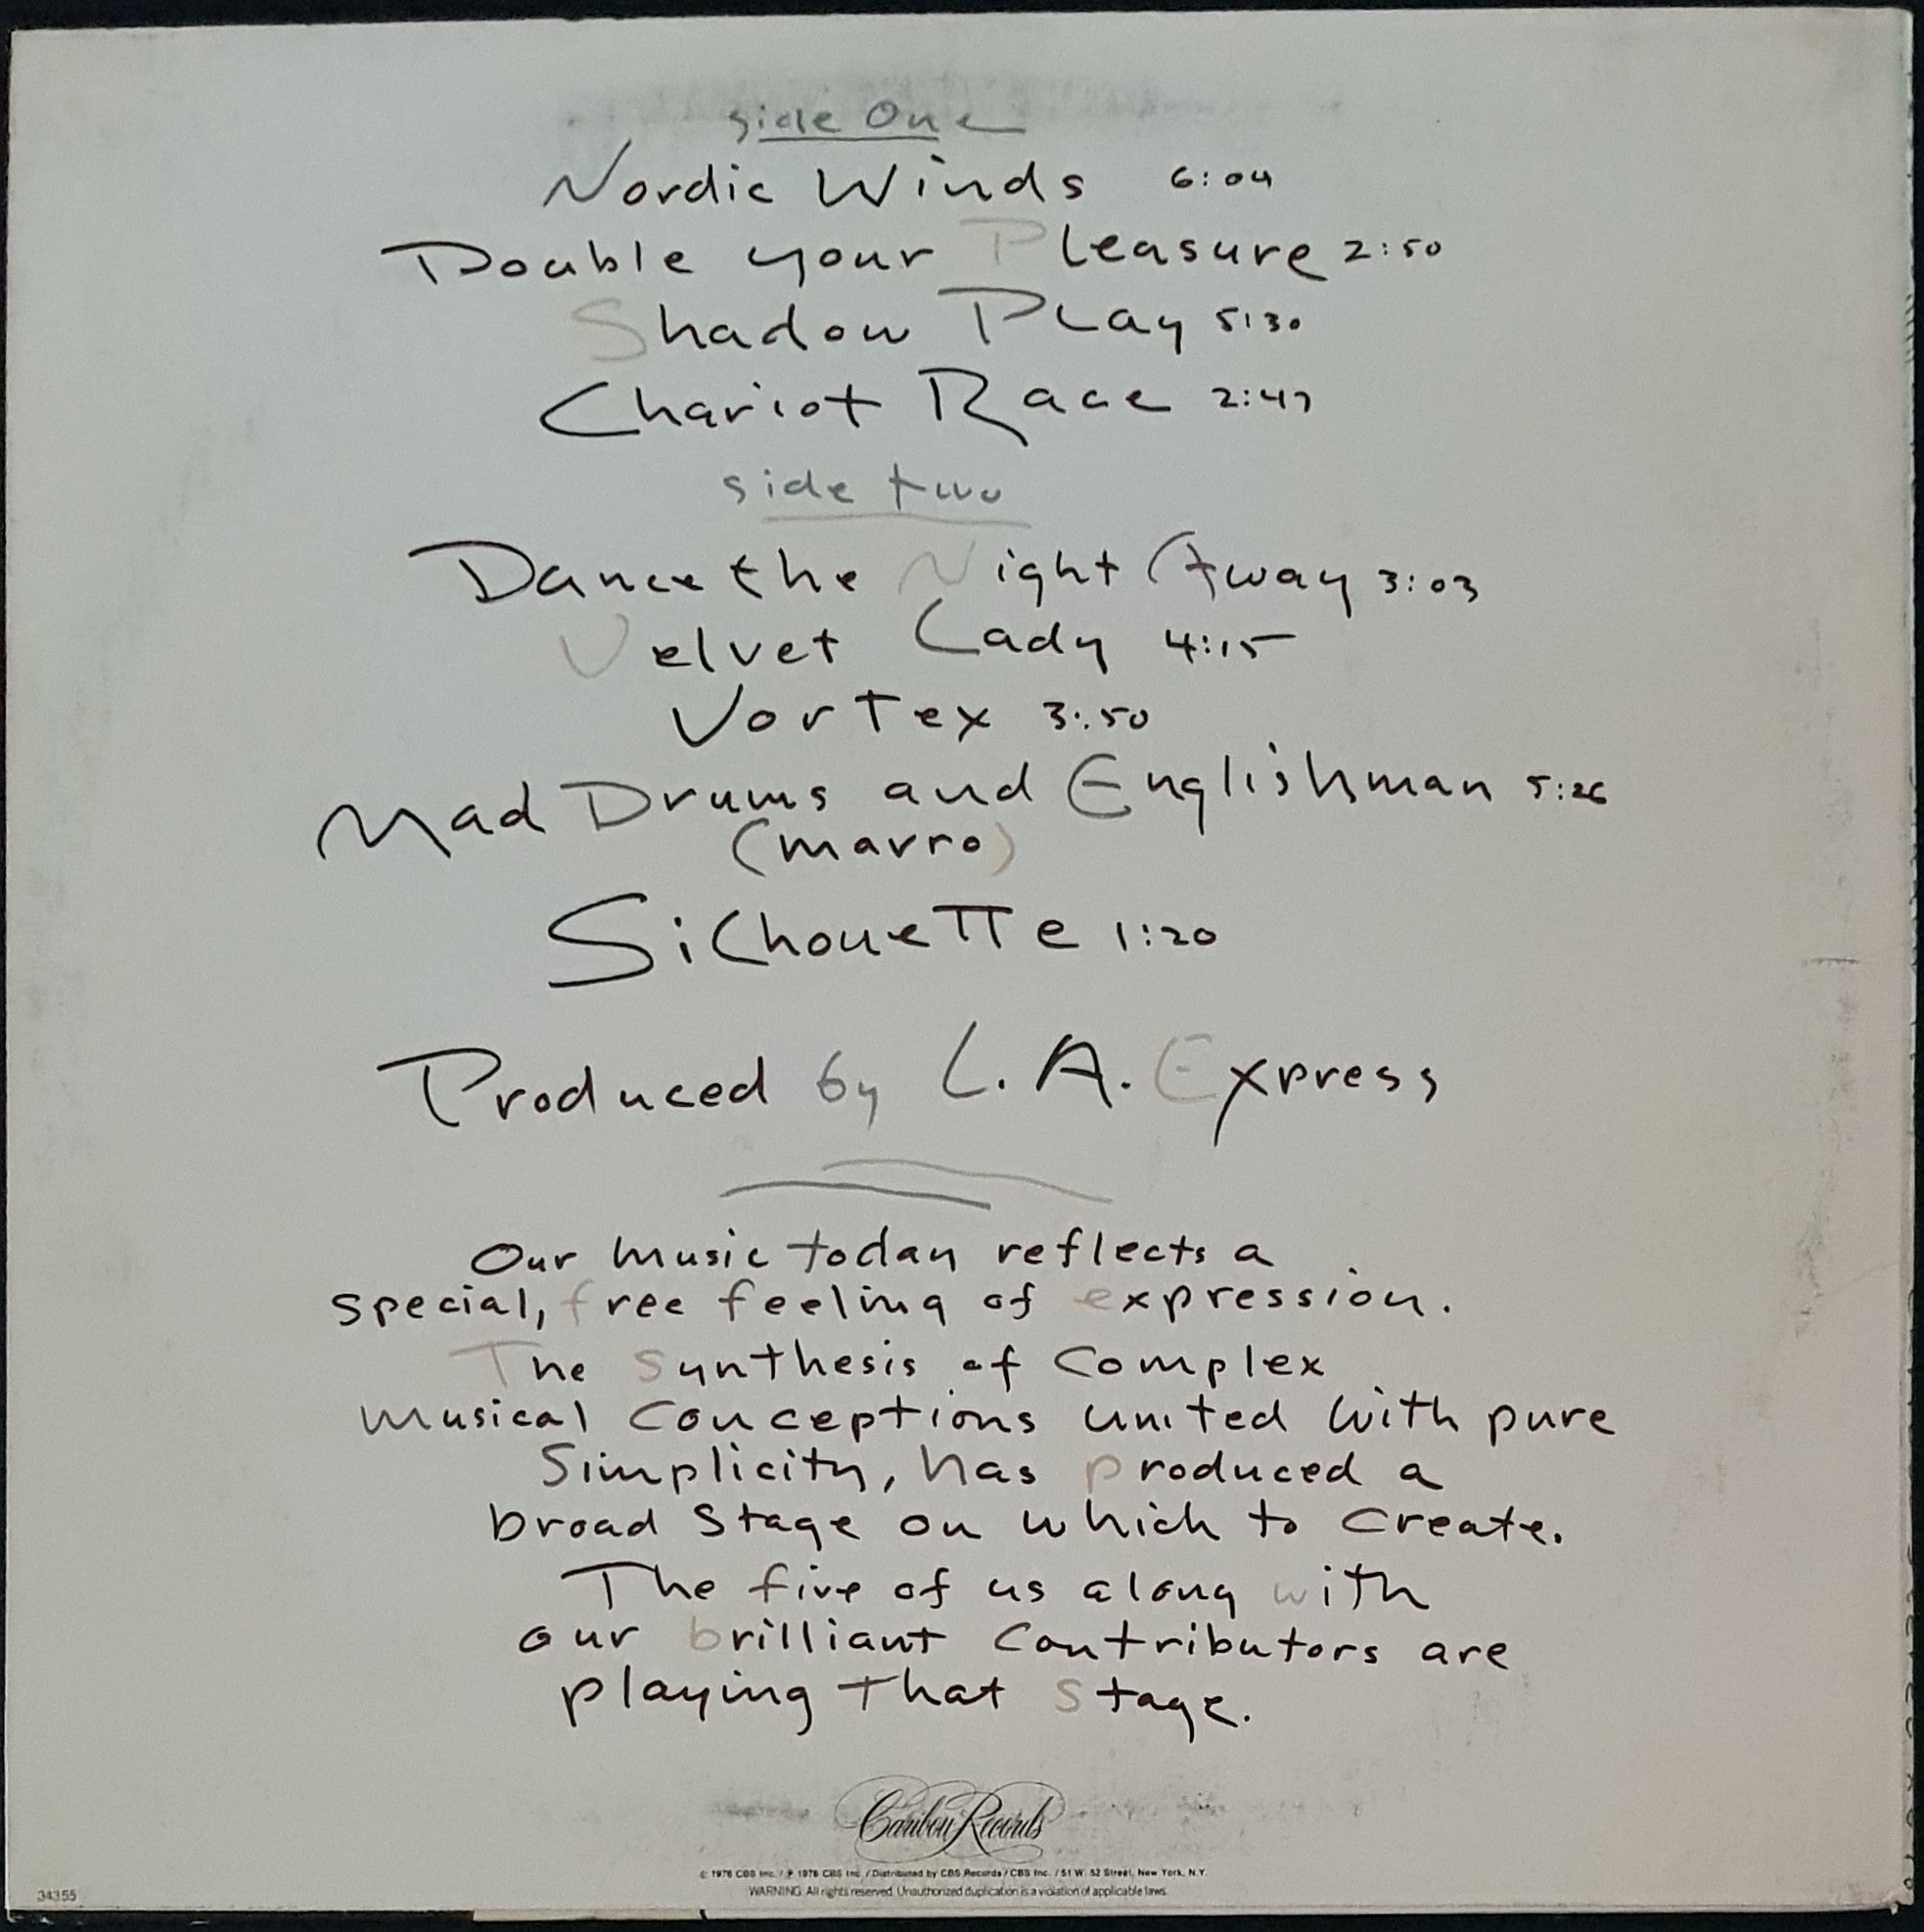 side One
Nordic Winds 6:04
Double your Pleasure 2:50
Shadow Play 5:30
Chariot Race 2:47
side two
Dance the Night Away 3:03
Velvet Lady 4:15
Vortex 3:50
Mad Drums and Englishman 5:26
(mavro)
Silhouette 1:20
Produced by L.A. Express
Our music today reflects a
special, free feeling of expression.
The Synthesis of Complex
musical conceptions united with pure
Simplicity, has produced a
broad Stage on which to create.
The five of us along with
our brilliant contributors are
playing that Stage.
Caribou Records
© 1976 CBS Inc. / ℗ 1976 CBS Inc. / Distributed by CBS Records / CBS Inc. / 51 W. 52 Street, New York, N.Y.
34355 WARNING: All rights reserved. Unauthorized duplication is a violation of applicable laws.